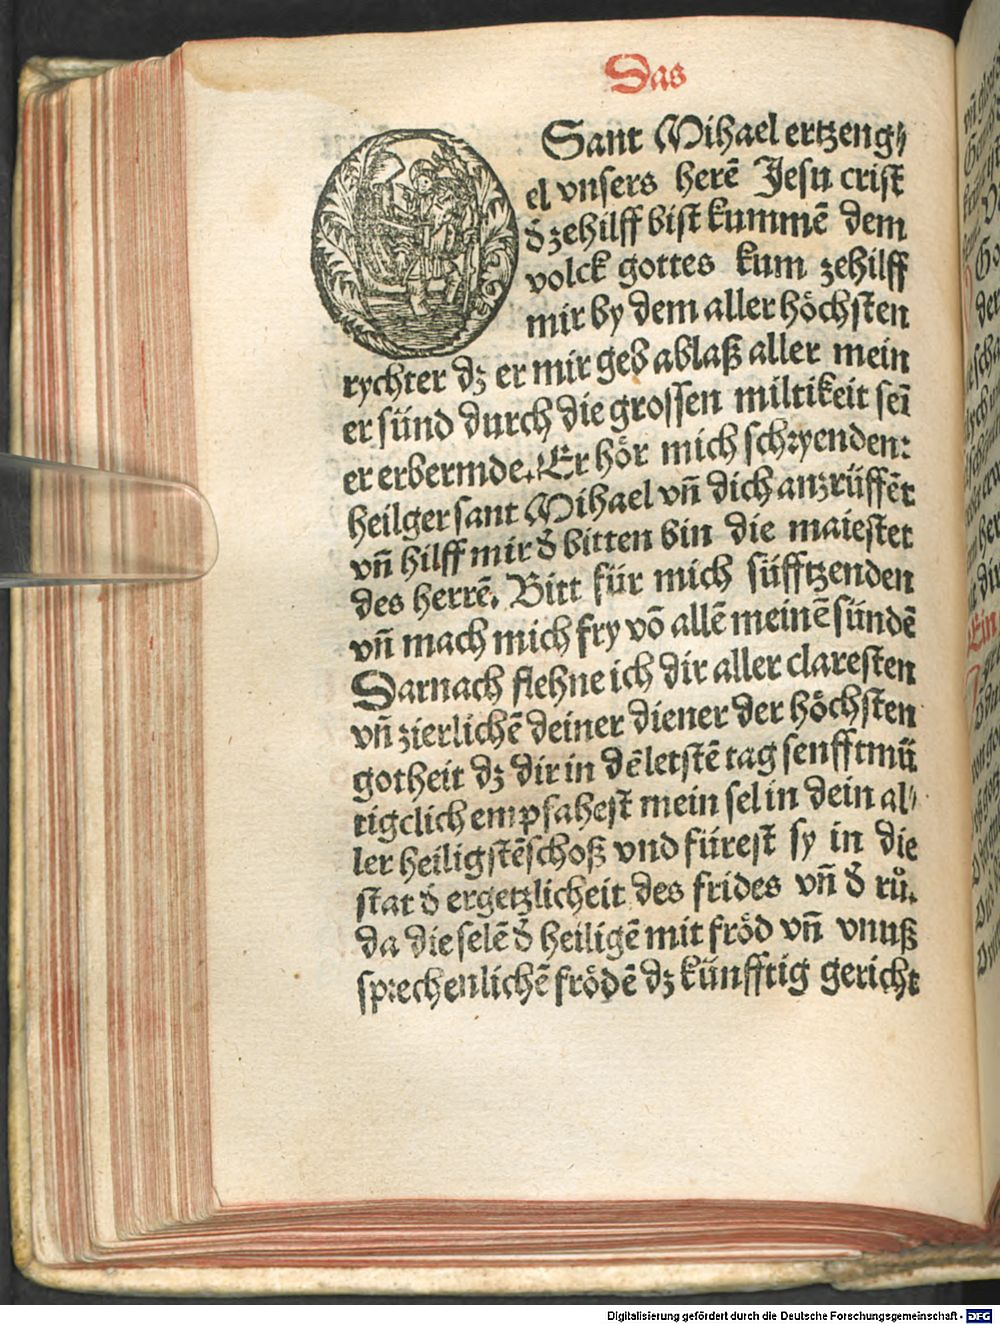 Das
O Sant Mihael ertzeng⸗
el vnsers herē Jesu crist
d̕ zehilff bist kummē dem
volck gottes kum zehilff
mir by dem aller höchsten
rychter dz er mir geb ablaß aller mein
er sünd durch die grossen miltikeit seī
er erbermde. Erhör mich schryenden:
heilger sant Mihael vñ dich anzrüffēt
vñ hilff mir d̕ bitten bin die maiestet
des herrē. Bitt für mich süfftzenden
vñ mach mich fry vō allē meinē sündē
Darnach flehne ich dir aller claresten
vñ zierlichē deiner diener der höchsten
gotheit dz dir in dē letstē tag senfftmü
tigclich empfahest mein sel in dein al⸗
ler heiligstē schoß vnd fürest sy in die
stat d̕ ergetzlicheit des frides vñ d̕ rů.
da die selē d̕ heiligē mit fröd vñ vnuß
sprechenlichē frödē dz künfftig gericht
Digitalisierung gefördert durch die Deutsche Forschungsgemeinschaft - DFG